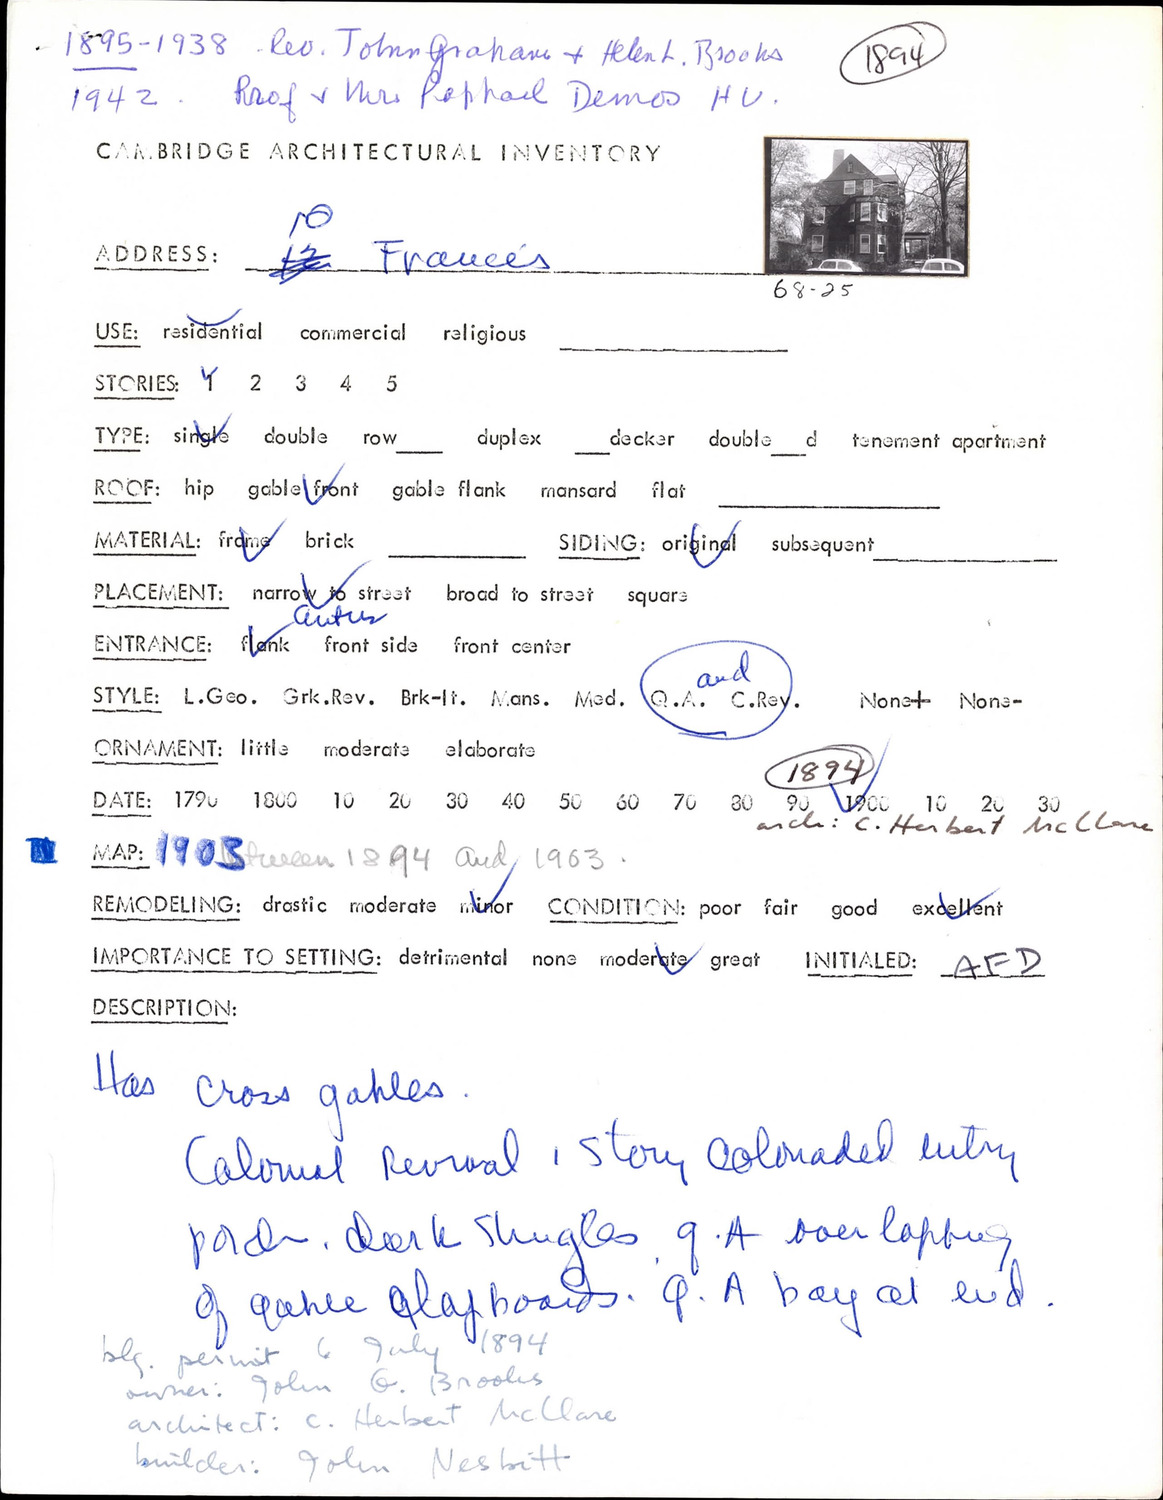 1895-1938 Rev. John Graham + Helen L. Brooks
1894
1942. Prof + Mrs Raphael Demos H U.
CAMBRIDGE ARCHITECTURAL INVENTORY
10
ADDRESS: 12 Francis
68-25
USE: residential commercial religious
STORIES: 1 2 3 4 5
TYPE: single double row___ duplex ___decker double___d tenement apartment
ROOF: hip gable front gable flank mansard flat
MATERIAL: frame brick SIDING: original subsequent
PLACEMENT: narrow to street broad to street square
center
ENTRANCE: flank front side front center
and
STYLE: L.Geo. Grk.Rev. Brk-It. Mans. Med. Q.A. C.Rev. None+ None-
ORNAMENT: little moderate elaborate
1894
DATE: 1790 1800 10 20 30 40 50 60 70 80 90 1900 10 20 30
arch: C. Herbert McClare
MAP: 1903 between 1894 and 1903.
REMODELING: drastic moderate minor CONDITION: poor fair good excellent
IMPORTANCE TO SETTING: detrimental none moderate great INITIALED: AFD
DESCRIPTION:
Has cross gables.
Colonial Revival 1 story colonaded entry
porch. dark shingles. Q.A overlapping
of gable clapboards. Q.A bay at end.
blg. permit 6 July 1894
owner: John G. Brooks
architect: C. Herbert McClare
builder: John Nesbitt